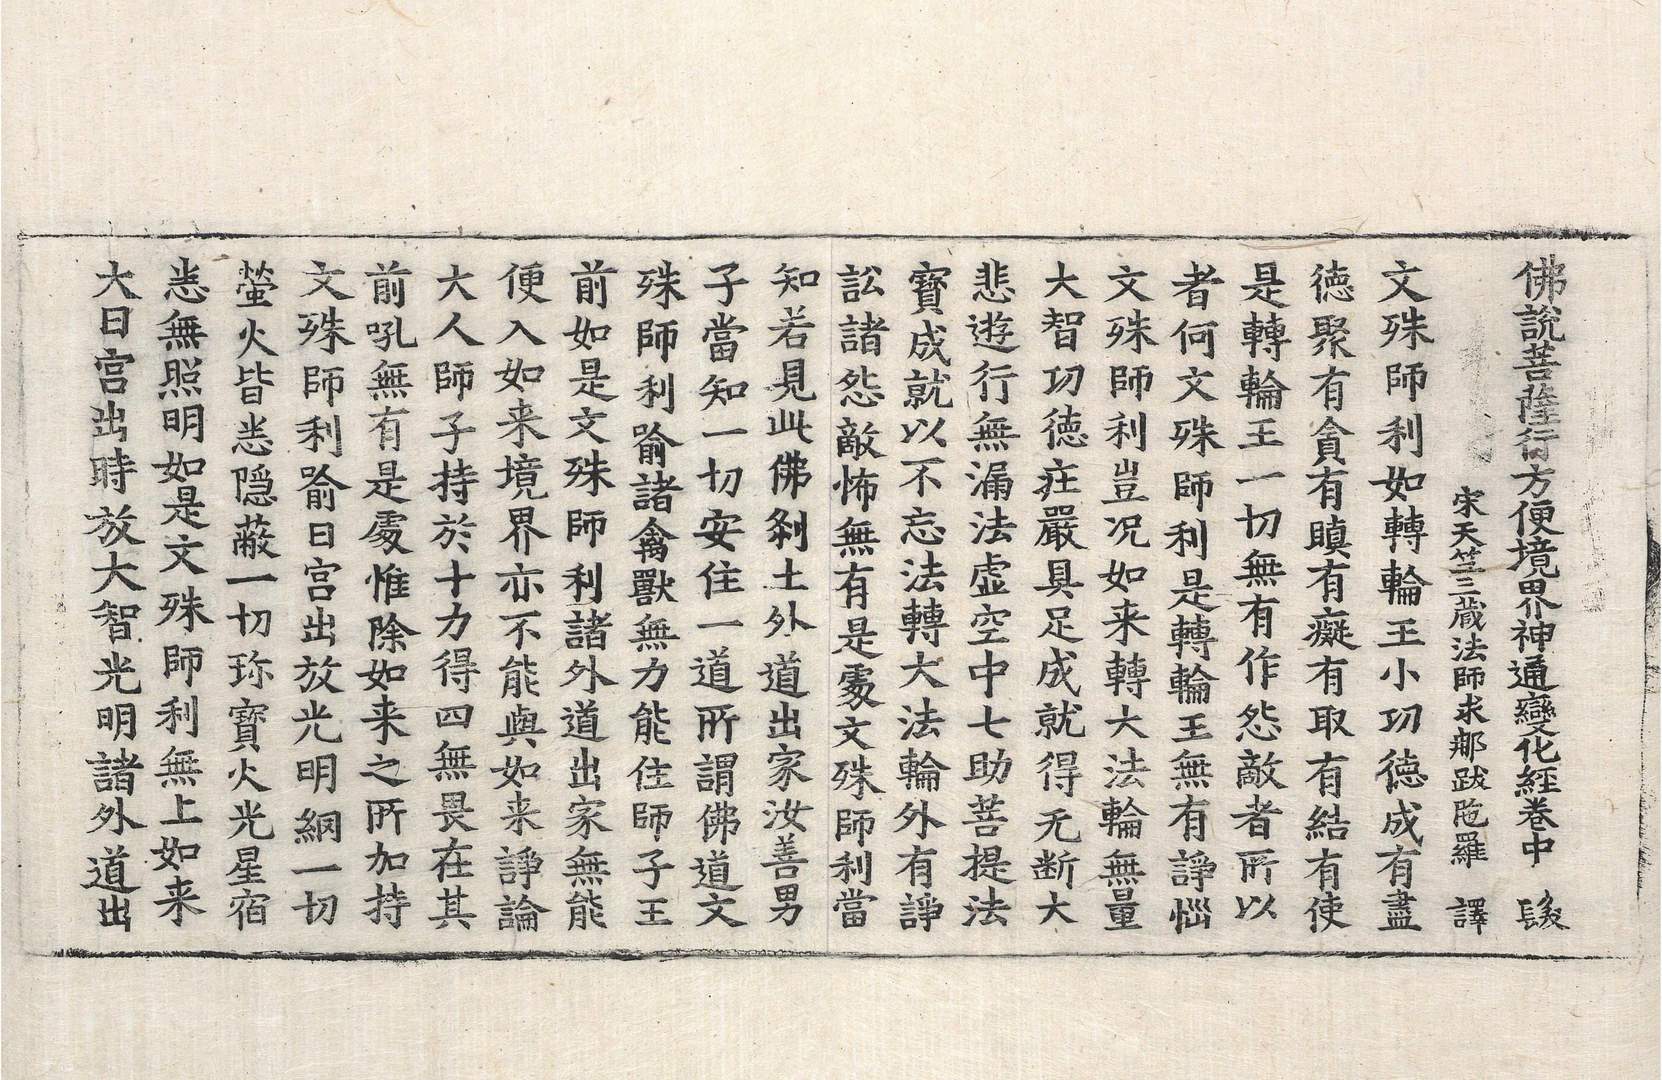 佛說菩薩行方便境界神通變化經卷中 髲
宋天竺三藏法師求那跋陁羅 譯
文殊師利如轉輪王小功德成有盡
德聚有貪有瞋有癡有取有結有使
是轉輪王一切無有作怨敵者所以
者何文殊師利是轉輪王無有諍惱
文殊師利豈况如来轉大法輪無量
大智功德莊嚴具足成就得无断大
悲遊行無漏法虛空中七助菩提法
寳成就以不忘法轉大法輪外有諍
訟諸怨敵怖無有是處文殊師利當
知若見此佛刹土外道出家汝善男
子當知一切安住一道所謂佛道文
殊師利喻諸禽獸無力能住師子王
前如是文殊師利諸外道出家無能
便入如来境界亦不能與如来諍論
大人師子持於十力得四無畏在其
前吼無有是處惟除如来之所加持
文殊師利喻日宫出放光明網一切
螢火皆悉隠蔽一切珎寳火光星宿
悉無照明如是文殊師利無上如来
大日宫出時放大智光明諸外道出